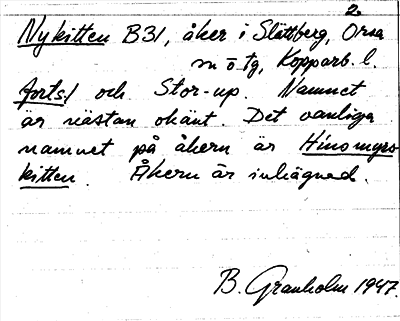 2
Nykitten B31, åker i Slättberg, Orsa
sn ö tg, Kopparb. l.
forts./ och Stor-up. Namnet
är nästan okänt. Det vanliga
namnet på åkern är Hinsmyrs-
kitten. Åkern är inhägnad.
B. Granholm 1947.